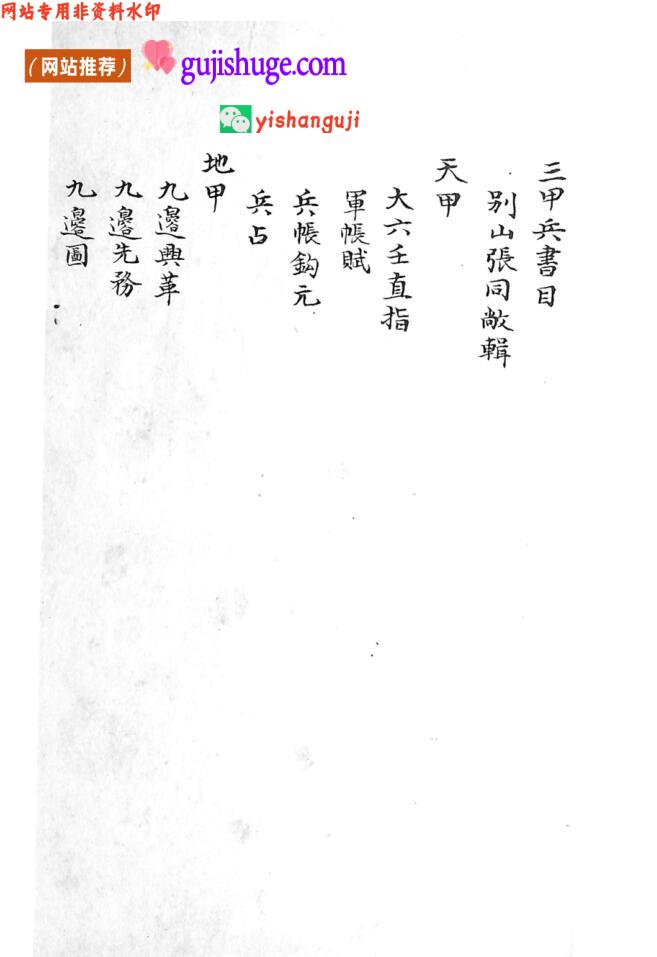 网站专用非资料水印
（网站推荐）
gujishuge.com
yishanguji
三甲兵書目
別山張同敞輯
天甲
大六壬直指
軍帳賦
兵帳鈎元
兵占
地甲
九邊興革
九邊先務
九邊圖